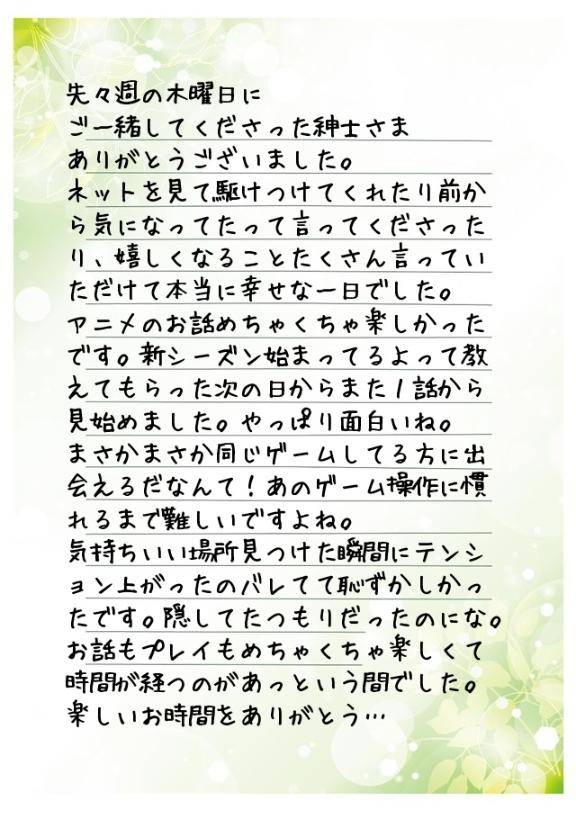 先々週の木曜日に
ご一緒してくださった紳士さま
ありがとうございました。
ネットを見て駆けつけてくれたり前か
ら気になってたって言ってくださった
り、嬉しくなることたくさん言ってい
ただけて本当に幸せな一日でした。
アニメのお話めちゃくちゃ楽しかった
です。新シーズン始まってるよって教
えてもらった次の日からまた1話から
見始めました。やっぱり面白いね。
まさかまさか同じゲームしてる方に出
会えるだなんて!あのゲーム操作に慣
れるまで難しいですよね。
気持ちいい場所見つけた瞬間にテンシ
ョン上がったのバレてて恥ずかしかっ
たです。隠してたつもりだったのにな。
お話もプレイもめちゃくちゃ楽しくて
時間が経つのがあっという間でした。
楽しいお時間をありがとう…